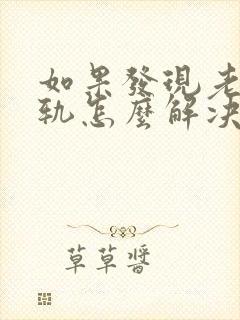 如果發現老
軌怎麼解決
草草醬